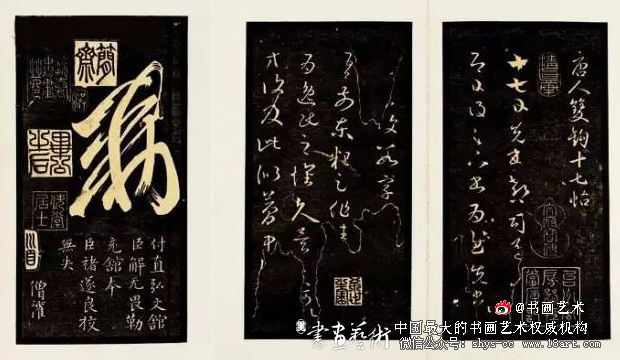 唐人雙鉤十七帖
十七日先書郗司馬未
去即日得足下書為慰先書
復數字
吾前東粗足作佳
為逸民之懷久矣足
方復及此似夢中
敕
付直弘文館
臣解无畏勒
充館本
臣褚遂良校
無失
僧權
簡齋
@书画艺术
書画藝術
中国最大的书画艺术权威机构
微信公众号: shys-cc www.18art.com